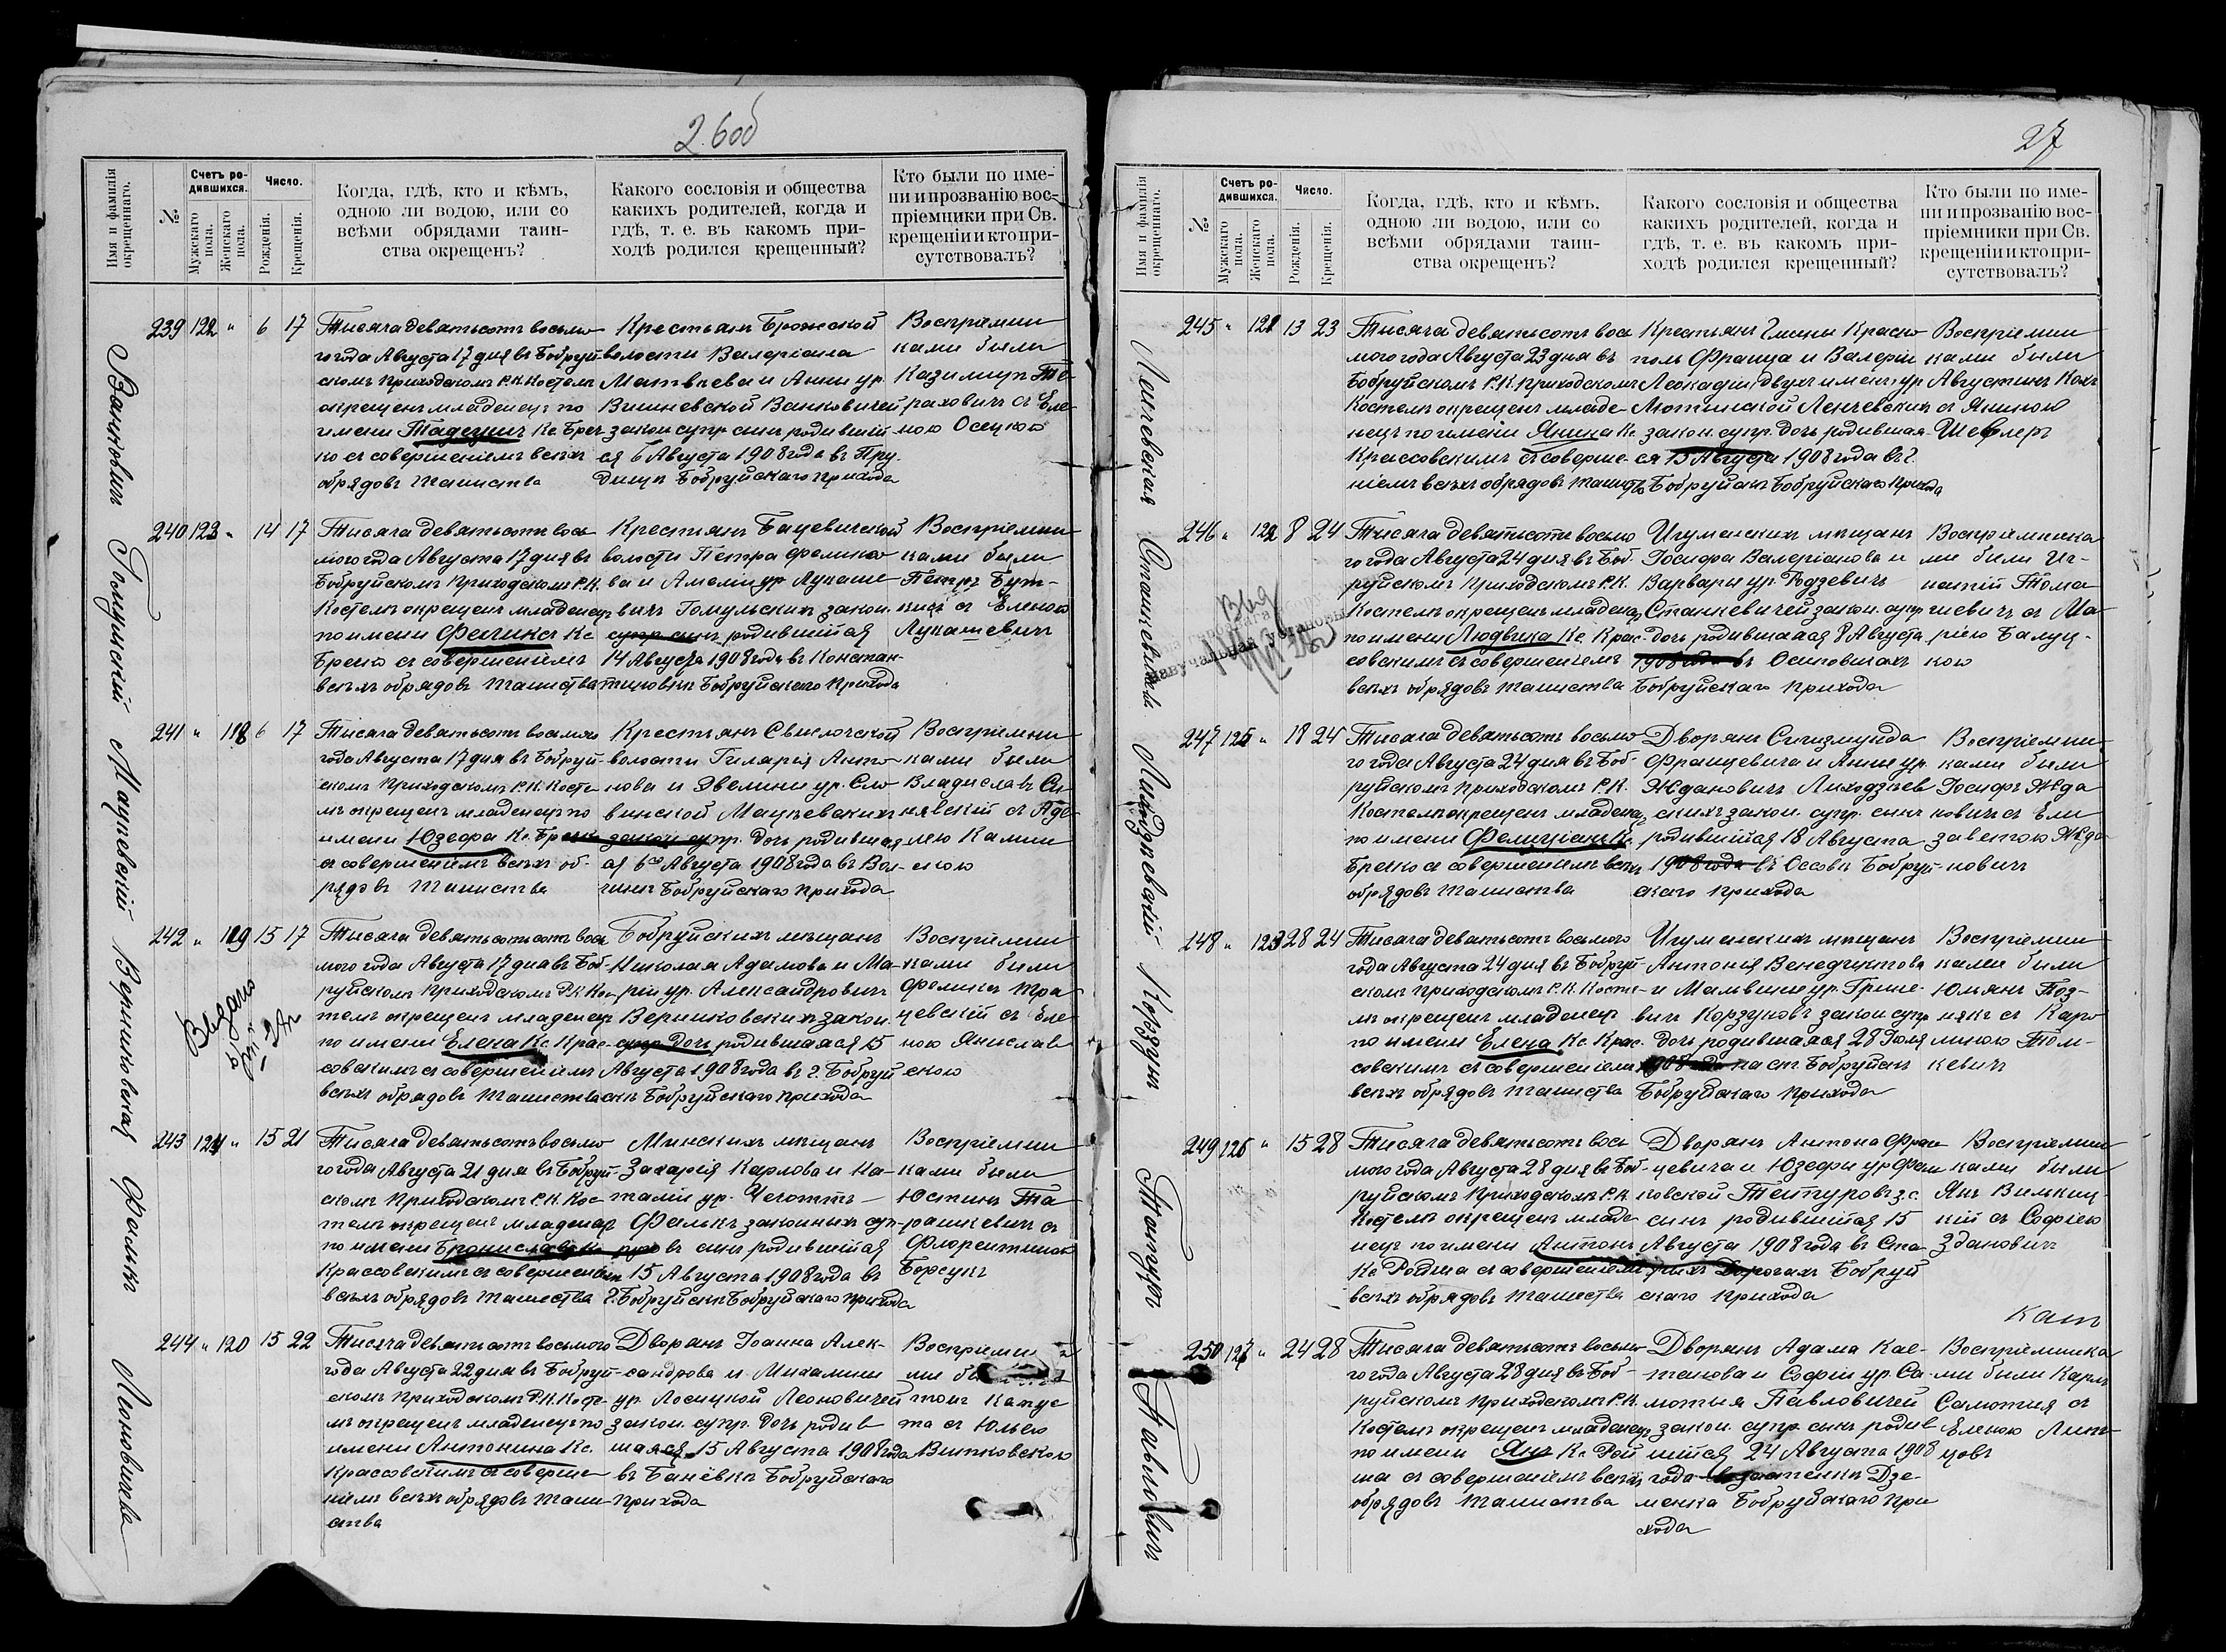 26об
Имя и фамилія окрещеннаго.
№
Счетъ родившихся.
Мужскаго пола.
Женскаго пола.
Число.
Рожденія.
Крещенія.
Когда, гдѣ, кто и кѣмъ,
одною ли водою, или со
всѣми обрядами таин-
ства окрещенъ?
Какого сословія и общества
какихъ родителей, когда и
гдѣ, т. е. въ какомъ при-
ходѣ родился крещенный?
Кто были по име-
ни и прозванію вос-
пріемники при Св.
крещеніи и кто при-
сутствовалъ?
Ванковичъ
239 122 " 6 17
Тысяча девятьсотъ восьмо-
го года Августа 17 дня въ Бобруй-
скомъ Приходскомъ Р.К. Костелѣ
окрещенъ младенецъ по
имени Тадеушъ Кс. Бреч-
ко съ совершеніемъ всѣхъ
обрядовъ Таинства
Крестьянъ Брожской
волости Валеріана
Матвѣева и Анны ур.
Вишневской Ванковичей
закон. супр. сынъ родившій
ся 6 Августа 1908 года въ Пру
дищѣ Бобруйскаго прихода
Воспріемни
ками были
Казимиръ Те-
раховичъ съ Еле-
ною Осецкою
Гомульскій
240 123 " 14 17
Тысяча девятьсотъ вось
мого года Августа 17 дня въ
Бобруйскомъ Приходскомъ Р.К.
Костелѣ окрещенъ младенецъ
по имени Феликсъ Кс
Бречко съ совершеніемъ
всѣхъ обрядовъ Таинства
Крестьянъ Бацевичской
волости Петра Феликсо
ва и Амеліи ур. Лукаше
вичъ Гомульскихъ закон.
супр. сынъ родившійся
14 Августа 1908 года въ Констан-
тиновкѣ Бобруйскаго Прихода
Воспріемни
ками были
Петръ Бут-
съ Еленою
Лукашевичъ
Мацкевскій
241 " 118 6 17
Тысяча девятьсотъ восьмого
года Августа 17 дня въ Бобруй-
скомъ Приходскомъ Р.К. Косте
лѣ окрещенъ младенецъ по
имени Юзефа Кс. Бречко
съ совершеніемъ всѣхъ об-
рядовъ Таинства
Крестьянъ Свислочской
волости Гиларія Анто-
нова и Эвелины ур. Сло
винской Мацкевскихъ
закон. супр. дочь родившая
ся 6го Августа 1908 года въ Вол-
чинѣ Бобруйскаго прихода
Воспріемни
ками были
Владиславъ Си-
нявскій съ Аде-
лею Камин
скою
Верниковская
Выдано
242 " 119 15 17
Тысяча девятьсотъ сотъ вось
мого года Августа 17 дня въ Боб-
руйскомъ Приходскомъ Р.К. Кос
телѣ окрещенъ младенецъ
по имени Елена Кс. Крас-
совскимъ съ совершеніемъ
всѣхъ обрядовъ Таинства
Бобруйскихъ мѣщанъ
Николая Адамова и Ма-
ріи ур. Александровичъ
Верниковскихъ закон.
супр. дочь родившаяся 15
Августа 1908 года въ г. Бобруй
скѣ Бобруйскаго прихода
Воспріемни
ками были
Феликсъ Тра
цевскій съ Еле-
ною Янислав
скою
Фалькъ
243 124 " 15 21
Тысяча девятьсотъ восьмо
го года Августа 21 дня въ Бобруй-
скомъ Приходскомъ Р.К. Кос
телѣ окрещенъ младенецъ
по имени Брониславъ Кс.
Крассовскимъ съ совершеніемъ
всѣхъ обрядовъ Таинства
Минскихъ мѣщанъ
Захарія Карлова и На-
таліи ур. Чечоттъ
Фалькъ законныхъ суп-
руговъ сынъ родившійся
15 Августа 1908 года въ
г. Бобруйскѣ Бобруйскаго прихода
Воспріемни
ками были
Юстинъ Та
рашкевичъ съ
Флорентиною
Борсукъ
Леоновичева
244 " 120 15 22
Тысяча девятьсотъ восьмого
года Августа 22 дня въ Бобруй-
скомъ Приходскомъ Р.К. Косте-
лѣ окрещенъ младенецъ по
имени Антонина Кс.
Крассовскимъ съ соверше-
ніемъ всѣхъ обрядовъ Таин-
ства
Дворянъ Іоанна Алек-
сандрова и Михалины
ур. Лосицкой Леоновичей
закон. супр. дочь родив
шаяся 15 Августа 1908 года
въ Баневкѣ Бобруйскаго
Прихода
Воспріемни
ми
Капус
та съ Юлією
Витковскою
27
Имя и фамилія окрещеннаго.
№
Счетъ родившихся.
Мужскаго пола.
Женскаго пола.
Число.
Рожденія.
Крещенія.
Когда, гдѣ, кто и кѣмъ,
одною ли водою, или со
всѣми обрядами таин-
ства окрещенъ?
Какого сословія и общества
какихъ родителей, когда и
гдѣ, т. е. въ какомъ при-
ходѣ родился крещенный?
Кто были по име-
ни и прозванію вос-
пріемники при Св.
крещеніи и кто при-
сутствовалъ?
Ленчевская
245 " 121 13 23
Тысяча девятьсотъ вось
мого года Августа 23 дня въ
Бобруйскомъ Р.К. Приходскомъ
Костелѣ окрещенъ младе-
нецъ по имени Янина Кс.
Крассовскимъ съ соверше-
ніемъ всѣхъ обрядовъ таинства
Крестьянъ Гмины Красно
поль Франца и Валеріи
Леокадіи двухъ именъ ур
Лютинской Ленчевскихъ
закон. супр. дочь родившая-
ся 13 Августа 1908 года въ г.
Бобруйскѣ Бобруйскаго прихода
Воспріемни
ками были
Августинъ Кохъ
съ Яниною
Шефлеръ
Станкевичева
246 " 122 8 24
Тысяча девятьсотъ восьмо
го года Августа 24 дня въ Боб-
руйскомъ Приходскомъ Р.К.
Костелѣ окрещенъ младенецъ
по имени Людвика Кс. Крас-
совскимъ съ совершеніемъ
всѣхъ обрядовъ таинства
Игуменскихъ мѣщанъ
Іосифа Валеріанова и
Варвары ур. Родзевичъ
Станкевичей закон. супр
дочь родившаяся 8 Августа
1908 года въ Осиповичахъ
Бобруйскаго прихода
Воспріемника
ми были Иг-
натій Тома
шевичъ съ Ма-
рією Балуц-
кою
Лиходзѣевскій
247 125 " 18 24
Тысяча девятьсотъ восьмо
го года Августа 24 дня въ Боб-
руйскомъ Приходскомъ Р.К.
Костелѣ окрещенъ младенецъ
по имени Фелиціанъ Кс.
Бречко съ совершеніемъ всѣхъ
обрядовъ таинства
Дворянъ Сигизмунда
Францевича и Анны ур.
Ждановичъ Лиходзѣев
скихъ закон. супр. сынъ
родившійся 18 Августа
1908 года въ Оссовѣ Бобруй-
скаго прихода
Воспріемни-
ками были
Іосифъ Жда
новичъ съ Ели
заветою Жда
новичъ
Корзунъ
248 " 123 28 24
Тысяча девятьсотъ восьмого
года Августа 24 дня въ Бобруй-
скомъ Приходскомъ Р.К. Косте-
лѣ окрещенъ младенецъ
по имени Елена Кс. Крас-
совскимъ съ совершеніемъ
всѣхъ обрядовъ таинства
Игуменскихъ мѣщанъ
Антонія Венедиктова
и Мальвины ур. Грине-
вичъ Корзуновъ закон супр
дочь родившаяся 28 Іюля
1908 года на ст. Бобруйскъ
Бобруйскаго прихода
Воспріемни
ками были
Юльянъ Поз-
някъ съ Каро
линою Том-
кевичъ
249 126 " 15 28
Тысяча девятьсотъ вось
мого года Августа 28 дня въ Боб-
руйскомъ Приходскомъ Р.К.
Костелѣ окрещенъ младе
нецъ по имени Антонъ
Кс Ройша съ совершеніемъ
всѣхъ обрядовъ таинства
Дворянъ Антона Фран
цевича и Юзефы ур
Тентуровъ з.с.
сынъ родившійся 15
Августа 1908 года въ Ста
рыхъ Дорогахъ Бобруй
скаго прихода
Воспріемни
ками были
Янъ Вилькиц-
кій съ Софією
Здановичъ
Павловичъ
250 127 " 24 28
Тысяча девятьсотъ восьмо
го года Августа 28 дня въ Боб-
руйскомъ Приходскомъ Р.К.
Костелѣ окрещенъ младенецъ
по имени Янъ Кс Рой
ша съ совершеніемъ всѣхъ
обрядовъ таинства
Дворянъ Адама Кае-
танова и Софіи ур. Са-
мотыя Павловичей
закон. супр. сынъ родив
шійся 24 Августа 1908
года въ застенкѣ Дзе-
менка Бобруйскаго при
хода
Воспріемника
ми были Карлъ
Самотыя съ
Еленою